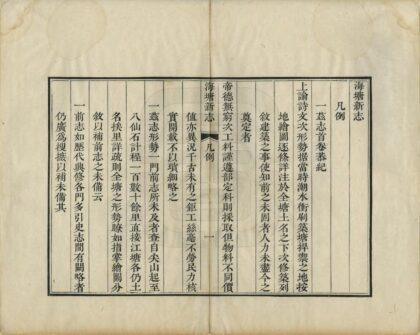 海塘新志
凡例
一茲志首卷恭紀
上諭詩文次形勢據當時潮水衝刷築塘捍禦之地按
地繪圖逐條詳注於全塘土名之下次修築列
敘建築之事使知前之未固者人力未盡今之
奠定者
帝德無窮次工料謹遵部定科則採取但物料不同價
海塘新志
凡例
一
值亦異況千古未有之鉅工絲毫不勞民力核
實開載不以瑣細略之
一茲志形勢一門前志所未及者查自尖山起至
八仙石計程一百數十餘里直接江塘各仍土
名挨里詳疏則全塘之形勢瞭如指掌繪圖分
敘以補前志之未備云
一前志如歷代興修各門多引史志間有闕略者
仍廣為搜摭以補未備其